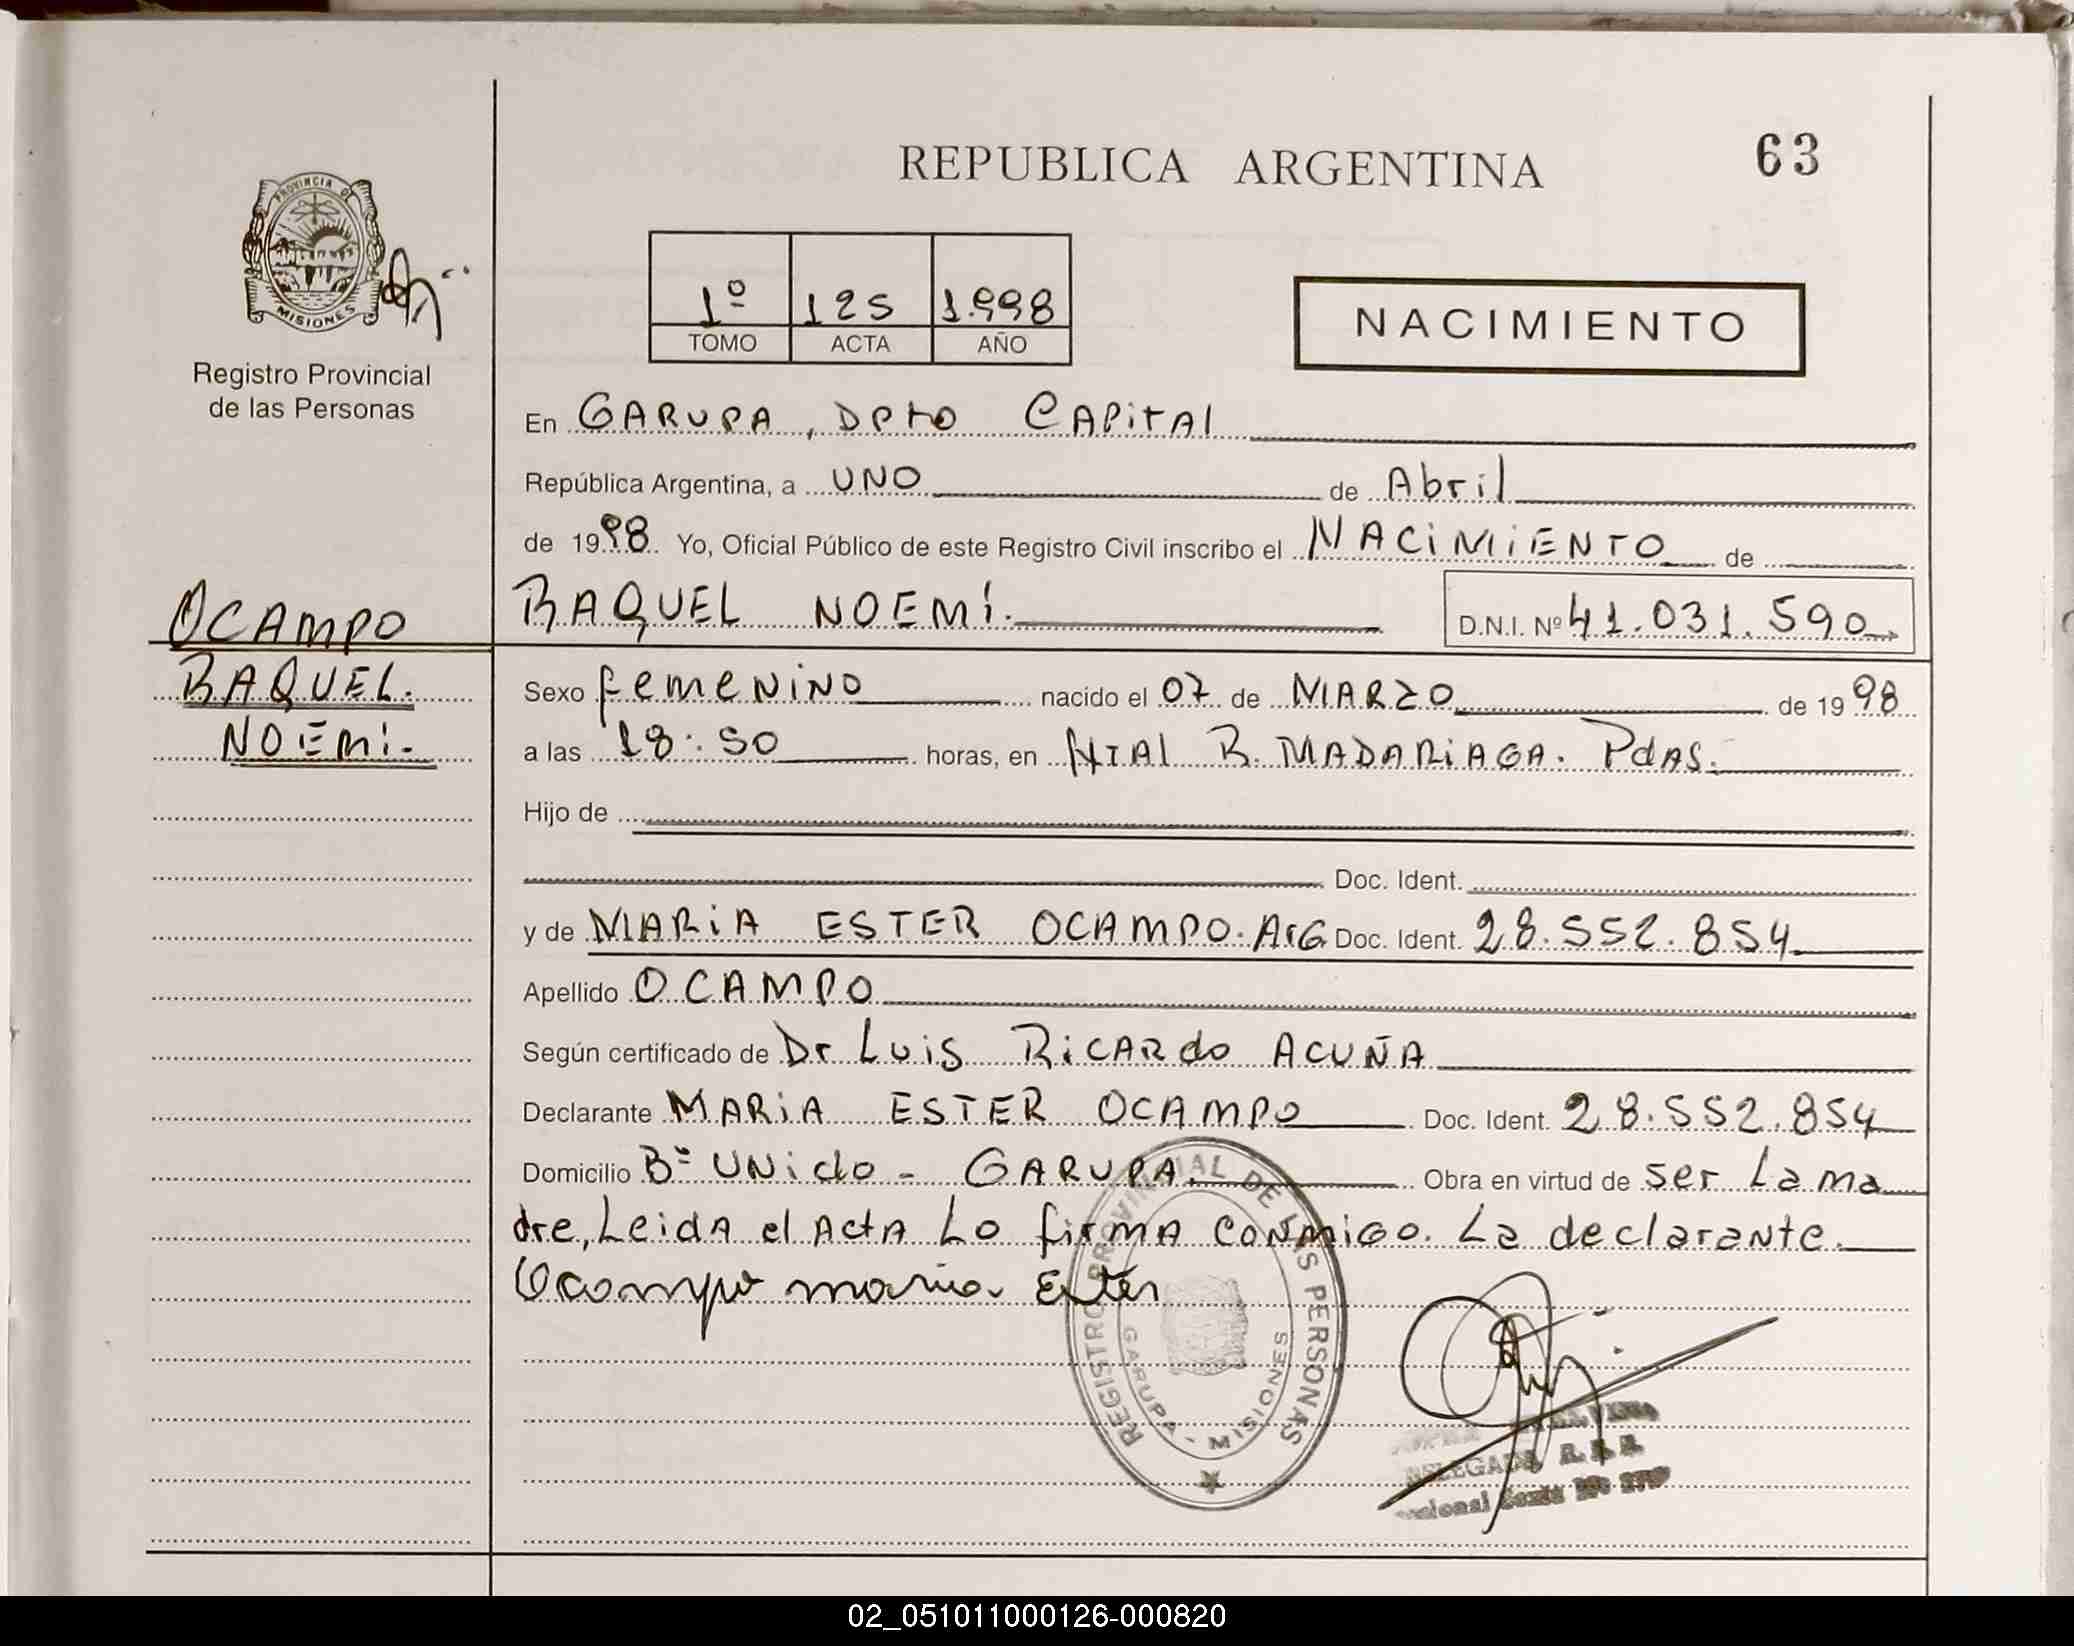 REPUBLICA ARGENTINA
63
PROVINCIA DE
MISIONES
Registro Provincial
de las Personas
1º 125 1.998
TOMO ACTA AÑO
NACIMIENTO
En GARUPA, Dpto CAPitAl
República Argentina, a UNO de Abril
de 1998 Yo, Oficial Público de este Registro Civil inscribo el NACiMiENTO de
OCAMPO
RAQUEL NOEMí. D.N.I. Nº 41.031.590
RAQUEL
NOEMi.
Sexo femeNiNO nacido el 07 de MARZO de 1998
a las 18:50 horas, en HTAl R. MADARiAGA. PdAS.
Hijo de
Doc. Ident.
y de MARiA ESTER OCAMPO. ArG Doc. Ident. 28.552.854
Apellido OCAMPO
Según certificado de Dr Luis RiCARdo ACUÑA
Declarante MARiA ESTER OCAMPO Doc. Ident. 28.552.854
Domicilio Bº UNido - GARUPA. Obra en virtud de ser La ma
dre, LeiDA el ActA Lo firMA CONMiGO. La declarante.
Ocampo maria Ester
REGISTRO PROVINCIAL DE LAS PERSONAS
GARUPA - MISIONES
DELEGADA
02_051011000126-000820